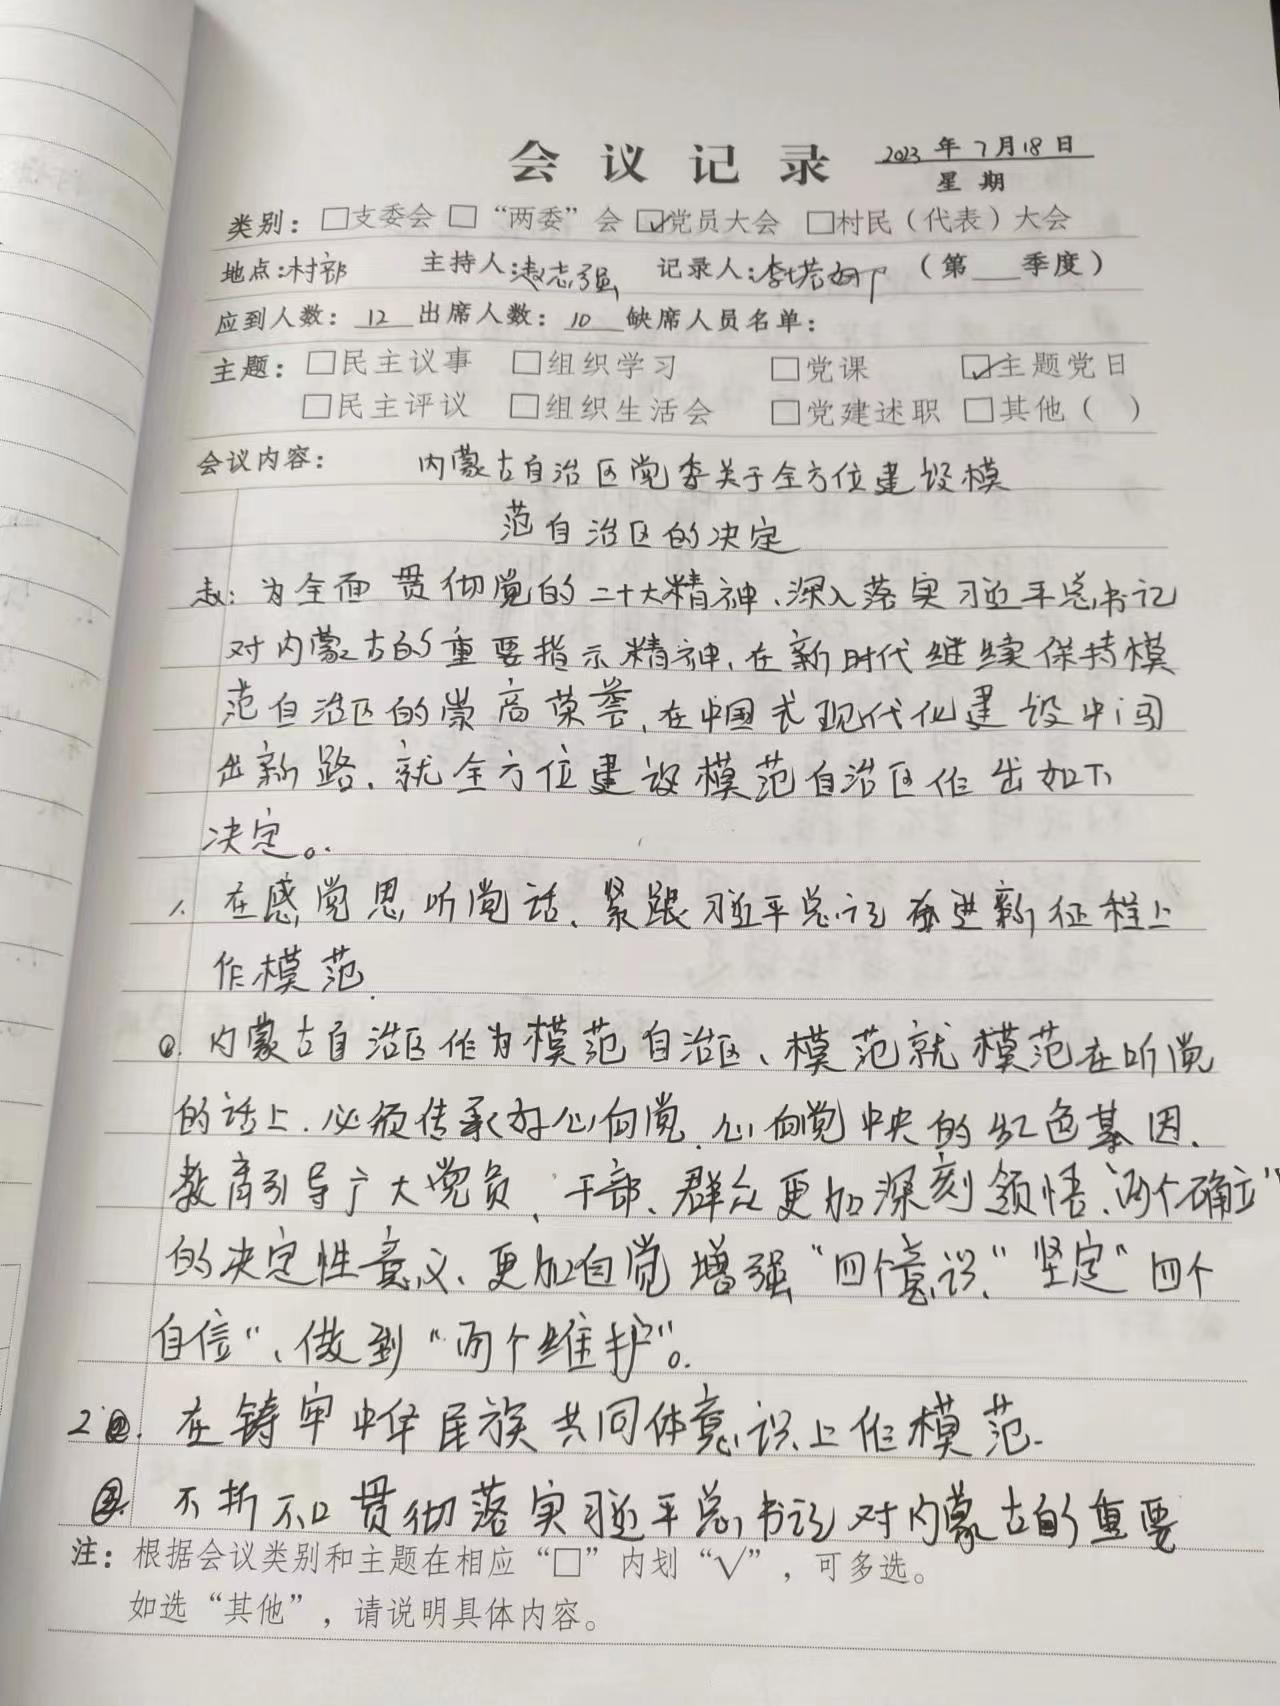 会议记录 2023年7月18日
星期
类别：□支委会 □“两委”会 ☑党员大会 □村民（代表）大会
地点：村部 主持人：赵志强 记录人：李塔娜 （第 季度）
应到人数：12 出席人数：10 缺席人员名单：
主题：□民主议事 □组织学习 □党课 ☑主题党日
□民主评议 □组织生活会 □党建述职 □其他（ ）
会议内容： 内蒙古自治区党委关于全方位建设模
范自治区的决定
赵：为全面贯彻党的二十大精神、深入落实习近平总书记
对内蒙古的重要指示精神、在新时代继续保持模
范自治区的崇高荣誉、在中国式现代化建设中闯
出新路、就全方位建设模范自治区作出如下
决定。
1. 在感党恩听党话、紧跟习近平总记奋进新征程上
作模范.
①. 内蒙古自治区作为模范自治区、模范就模范在听党
的话上.必须传承好心向党.心向党中央的红色基因.
教育引导广大党员、干部、群众更加深刻领悟、两个确立"
的决定性意义、更加自觉增强“四个意识”、坚定“四个
自信”、做到“两个维护”。
2. 在铸牢中华民族共同体意识上作模范.
②. 不折不口贯彻落实习近平总书记对内蒙古的重要
注：根据会议类别和主题在相应“□”内划“√”，可多选。
如选“其他”，请说明具体内容。